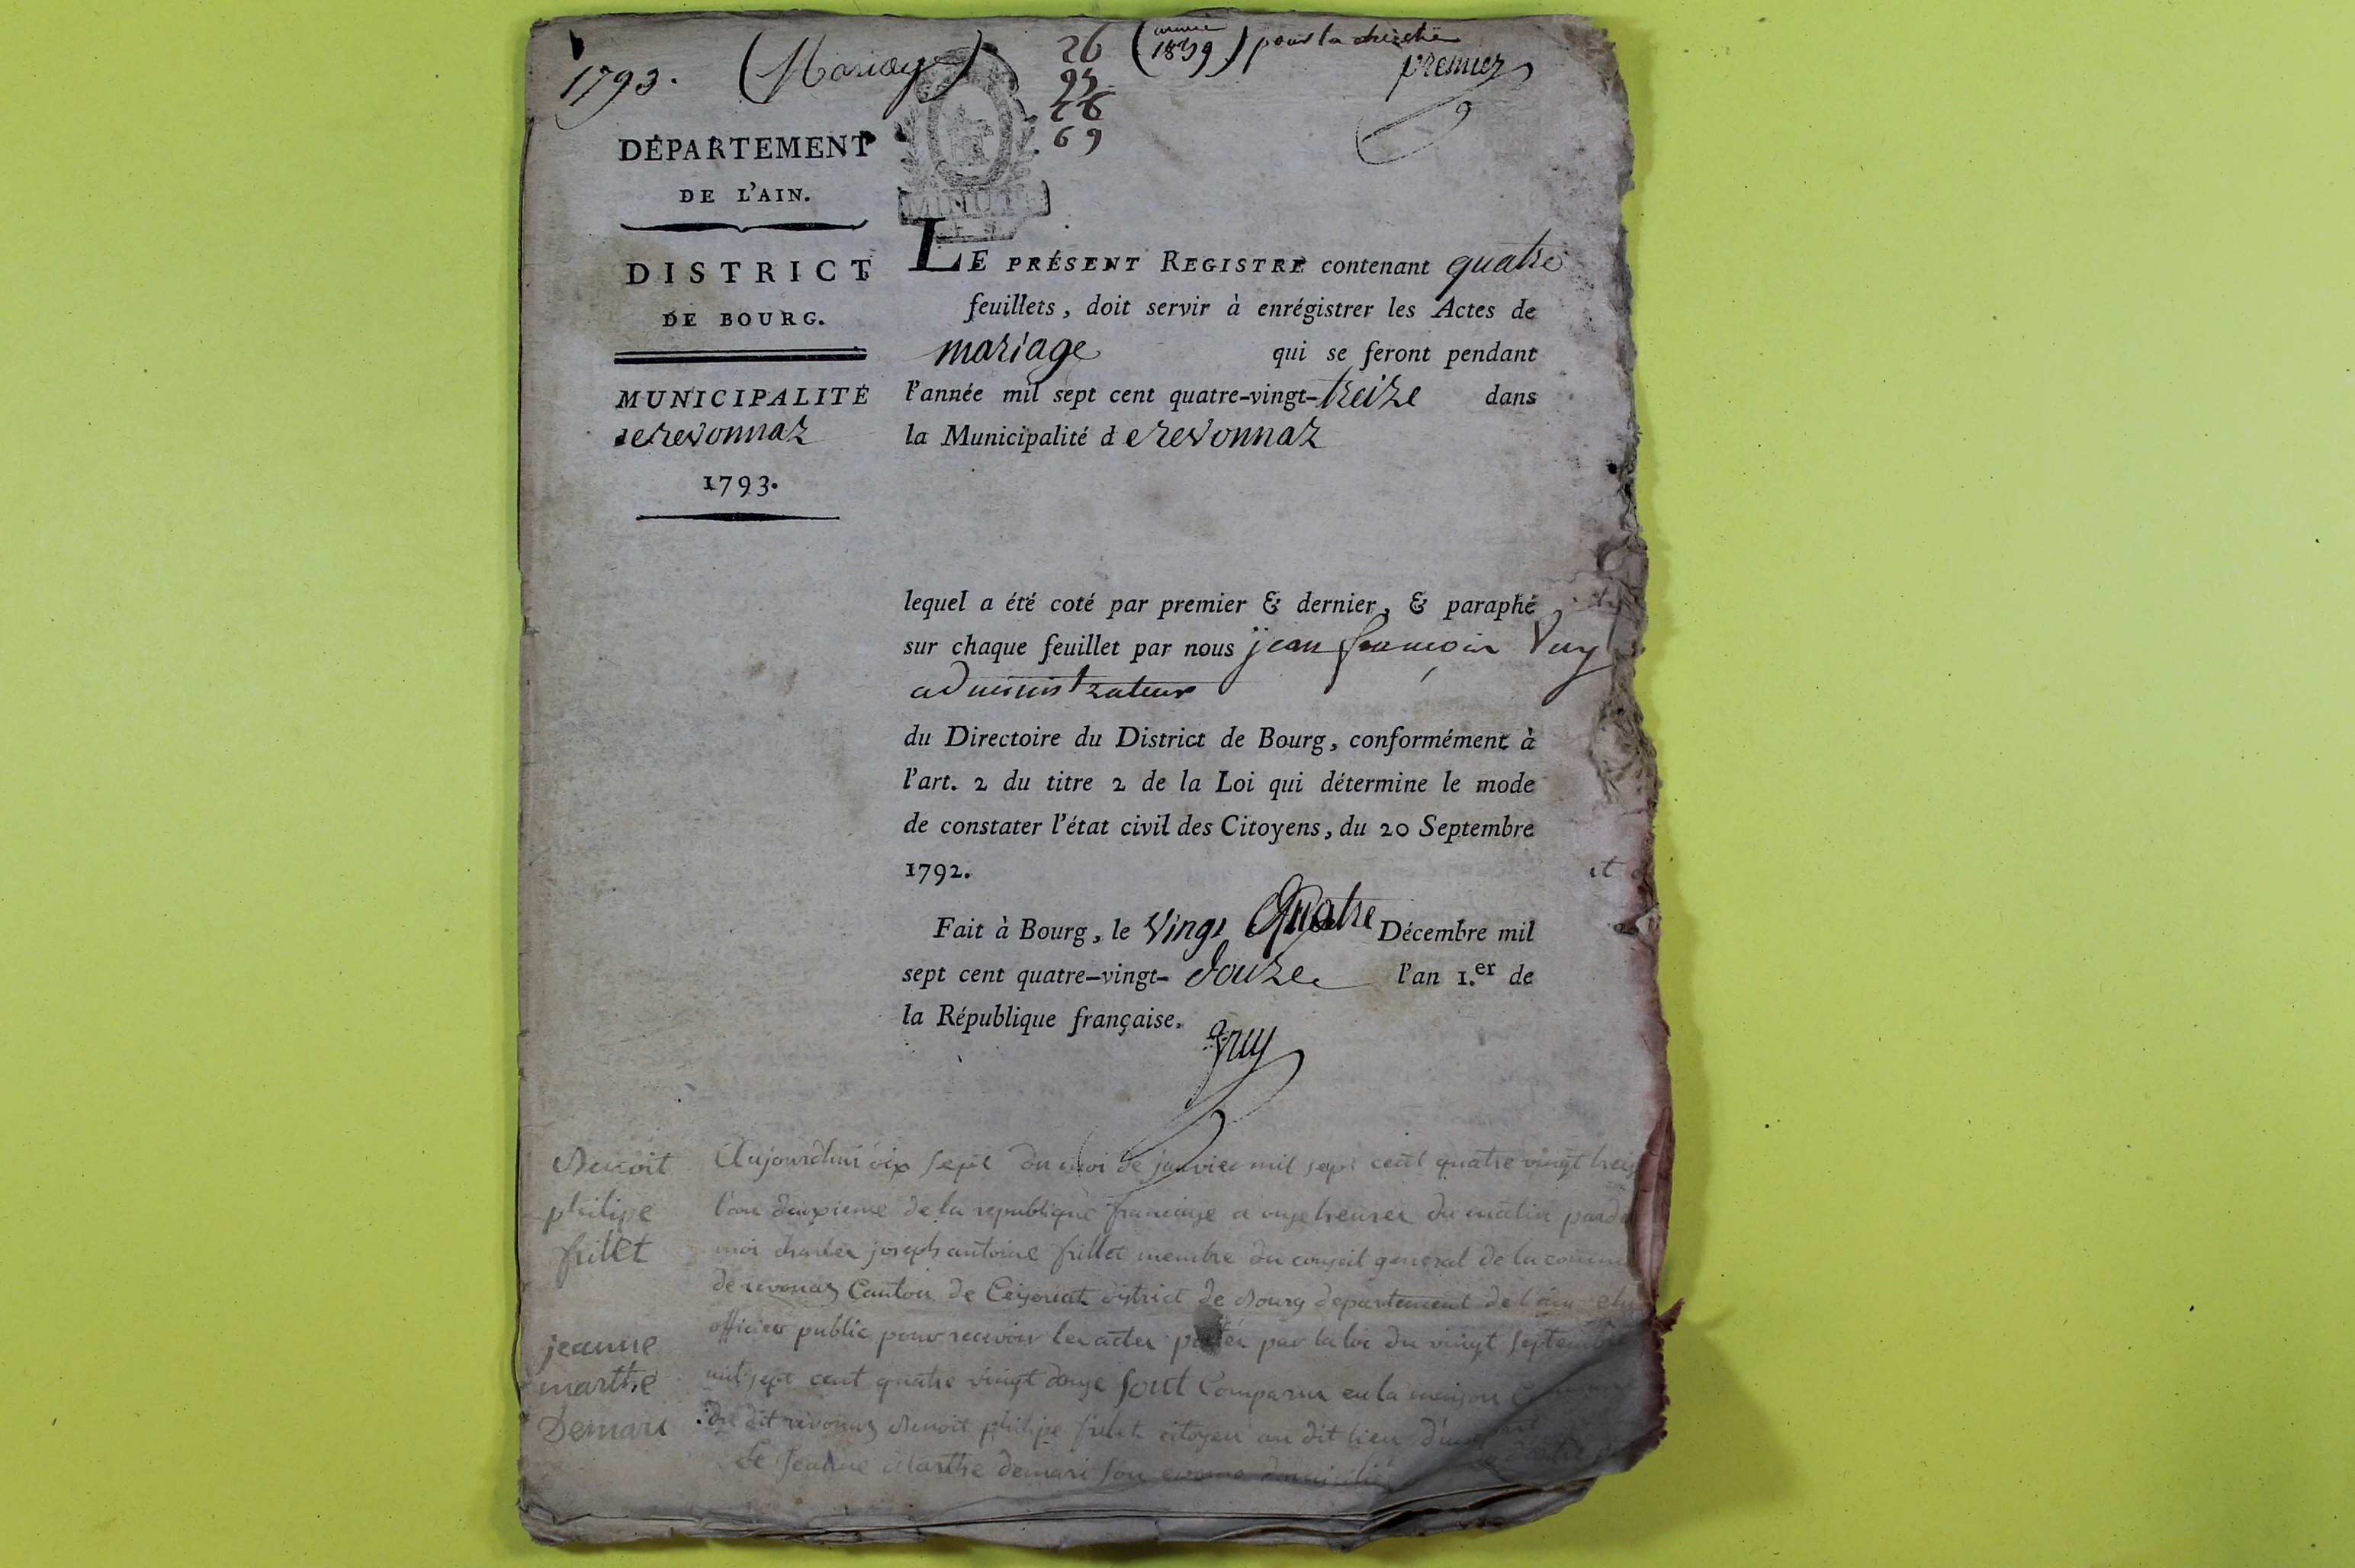 1793. (Mariage) 26 (année 1839) pour la
premier
95
26
69
DÉPARTEMENT
DE L'AIN.
MINUTE
DISTRICT
DE BOURG.
MUNICIPALITÉ
de revonnaz
1793.
LE PRÉSENT REGISTRE contenant quatre
feuillets, doit servir à enrégistrer les Actes de
mariage qui se feront pendant
l'année mil sept cent quatre-vingt-treize dans
la Municipalité d e revonnaz
lequel a été coté par premier & dernier, & paraphé
sur chaque feuillet par nous jean françois Vuy
administrateur
du Directoire du District de Bourg, conformément à
l'art. 2 du titre 2 de la Loi qui détermine le mode
de constater l'état civil des Citoyens, du 20 Septembre
1792.
Fait à Bourg, le Vingt Quatre Décembre mil
sept cent quatre-vingt- douze l'an 1.er de
la République française.
Benoit
philipe
frillet
jeanne
marthe
Demari
Aujourdhui dix sept du moi de janvier mil sept cent quatre vingt treize
l'an deuxieme de la republique françaize a onze heures du matin parde
moi charles joseph antoine frillet membre du conseil general de la comm
de revonaz Canton de Ceyzeriat district de Bourg departement de l'ain elu
officier public pour recevoir les actes portés par la loi du vingt septembre
mil sept cent quatre vingt douze sont Comparus en la maison
du dit revonaz Benoit philipe frilet citoyen au dit lieu d'une part
Et Jeanne Marthe demari